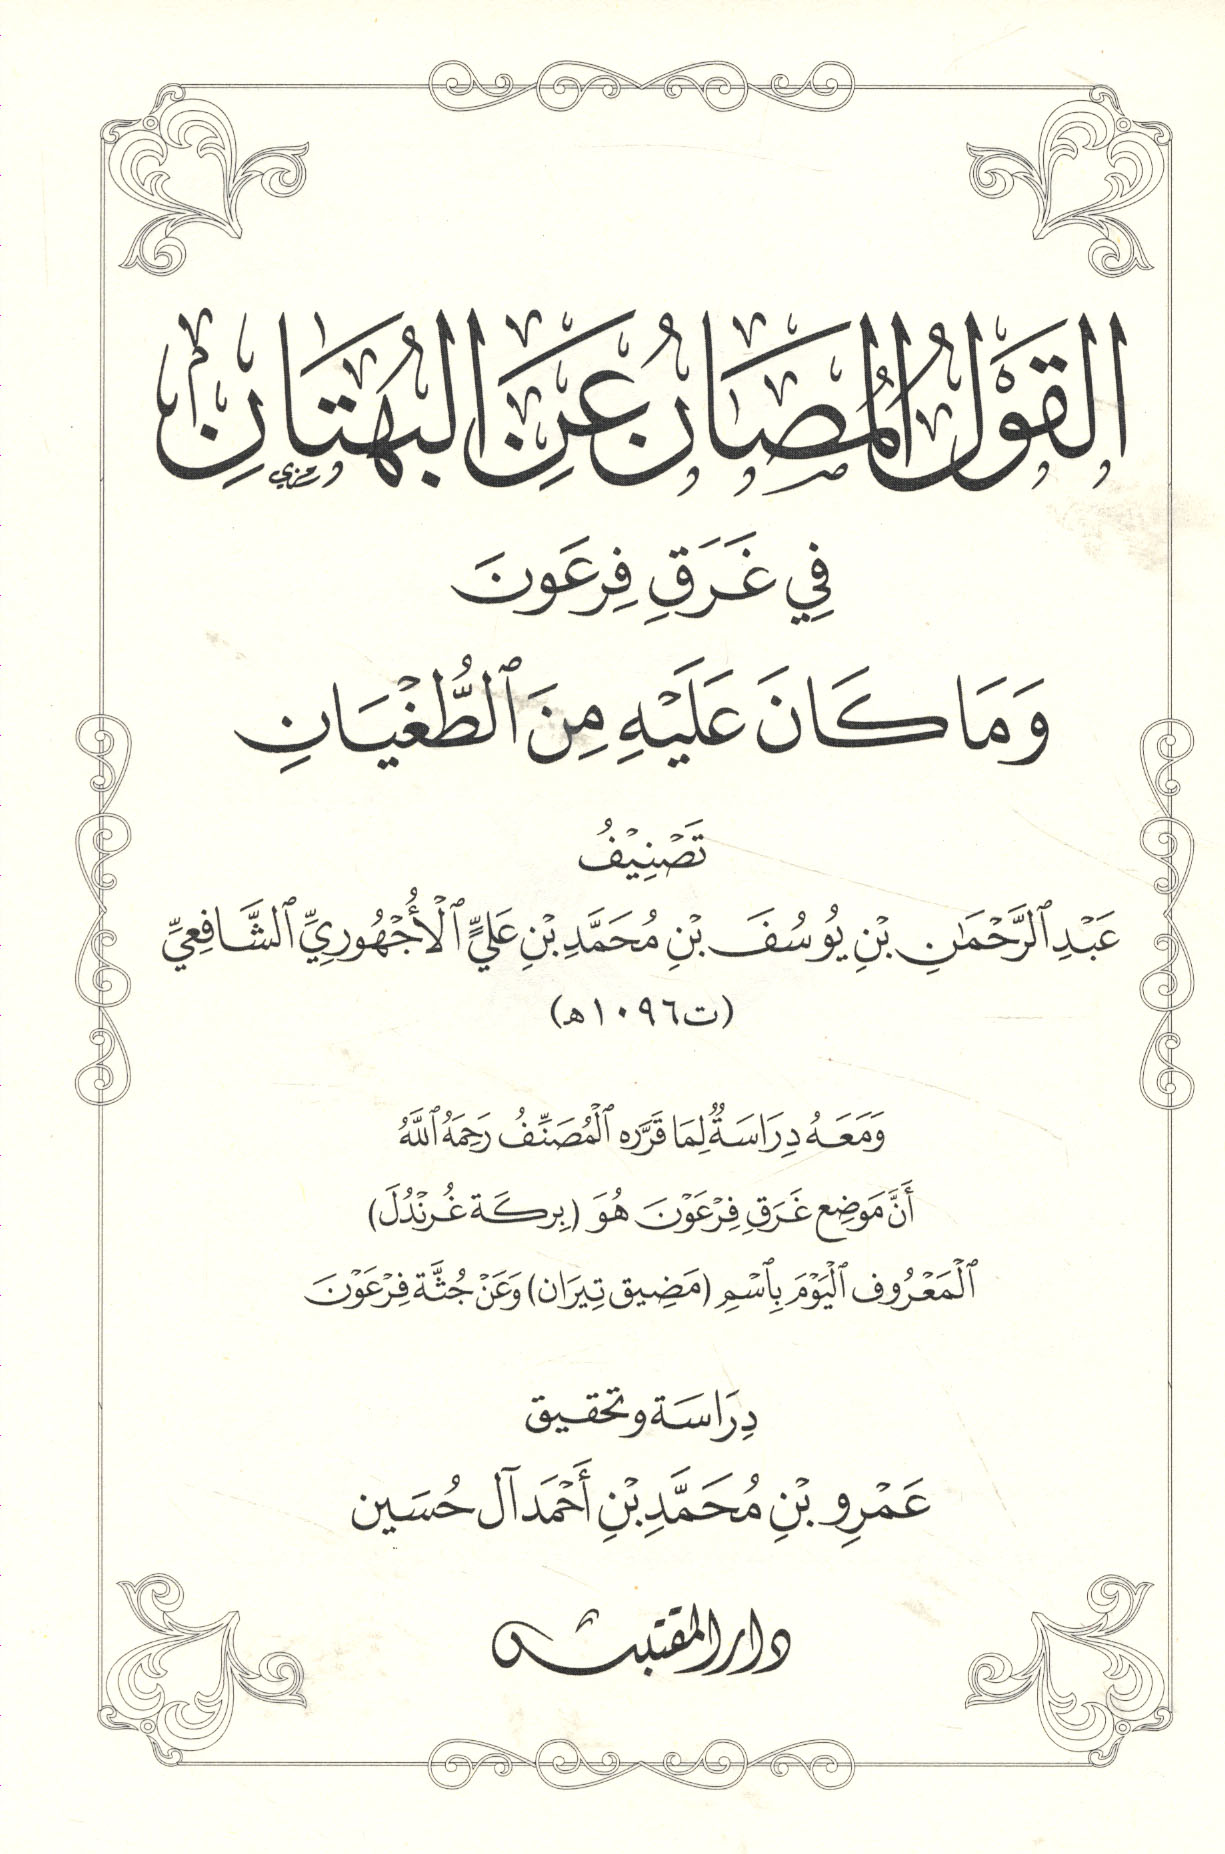 القَوْلُ المُصَانُ عَنِ البُهْتَانِ
فِي غَرَقِ فِرعَونَ
وَمَا كَانَ عَلَيْهِ مِنَ ٱلطُّغْيَانِ
تَصْنِيْفُ
عَبْدِ ٱلرَّحْمَٰنِ بْنِ يُوسُفَ بْنِ مُحَمَّدِ بْنِ عَلِيٍّ ٱلْأُجْهُورِيِّ ٱلشَّافِعِيِّ
(ت١٠٩٦ه)
وَمَعَهُ دِرَاسَةٌ لِمَا قَرَّرَه ٱلْمُصَنِّفُ رَحِمَهُ ٱللَّهُ
أَنَّ مَوضِع غَرَقِ فِرْعَوْنَ هُوَ (بِركَة غُرنْدُلَ)
ٱلْمَعْرُوف ٱلْيَوْمَ بِٱسْمِ (مَضِيق تِيرَان) وَعَنْ جُثَّة فِرْعَوْنَ
دِرَاسَة وتحقيق
عَمْرِو بْنِ مُحَمَّدِ بْنِ أَحْمَدَ آل حُسَين
دار المقتبس